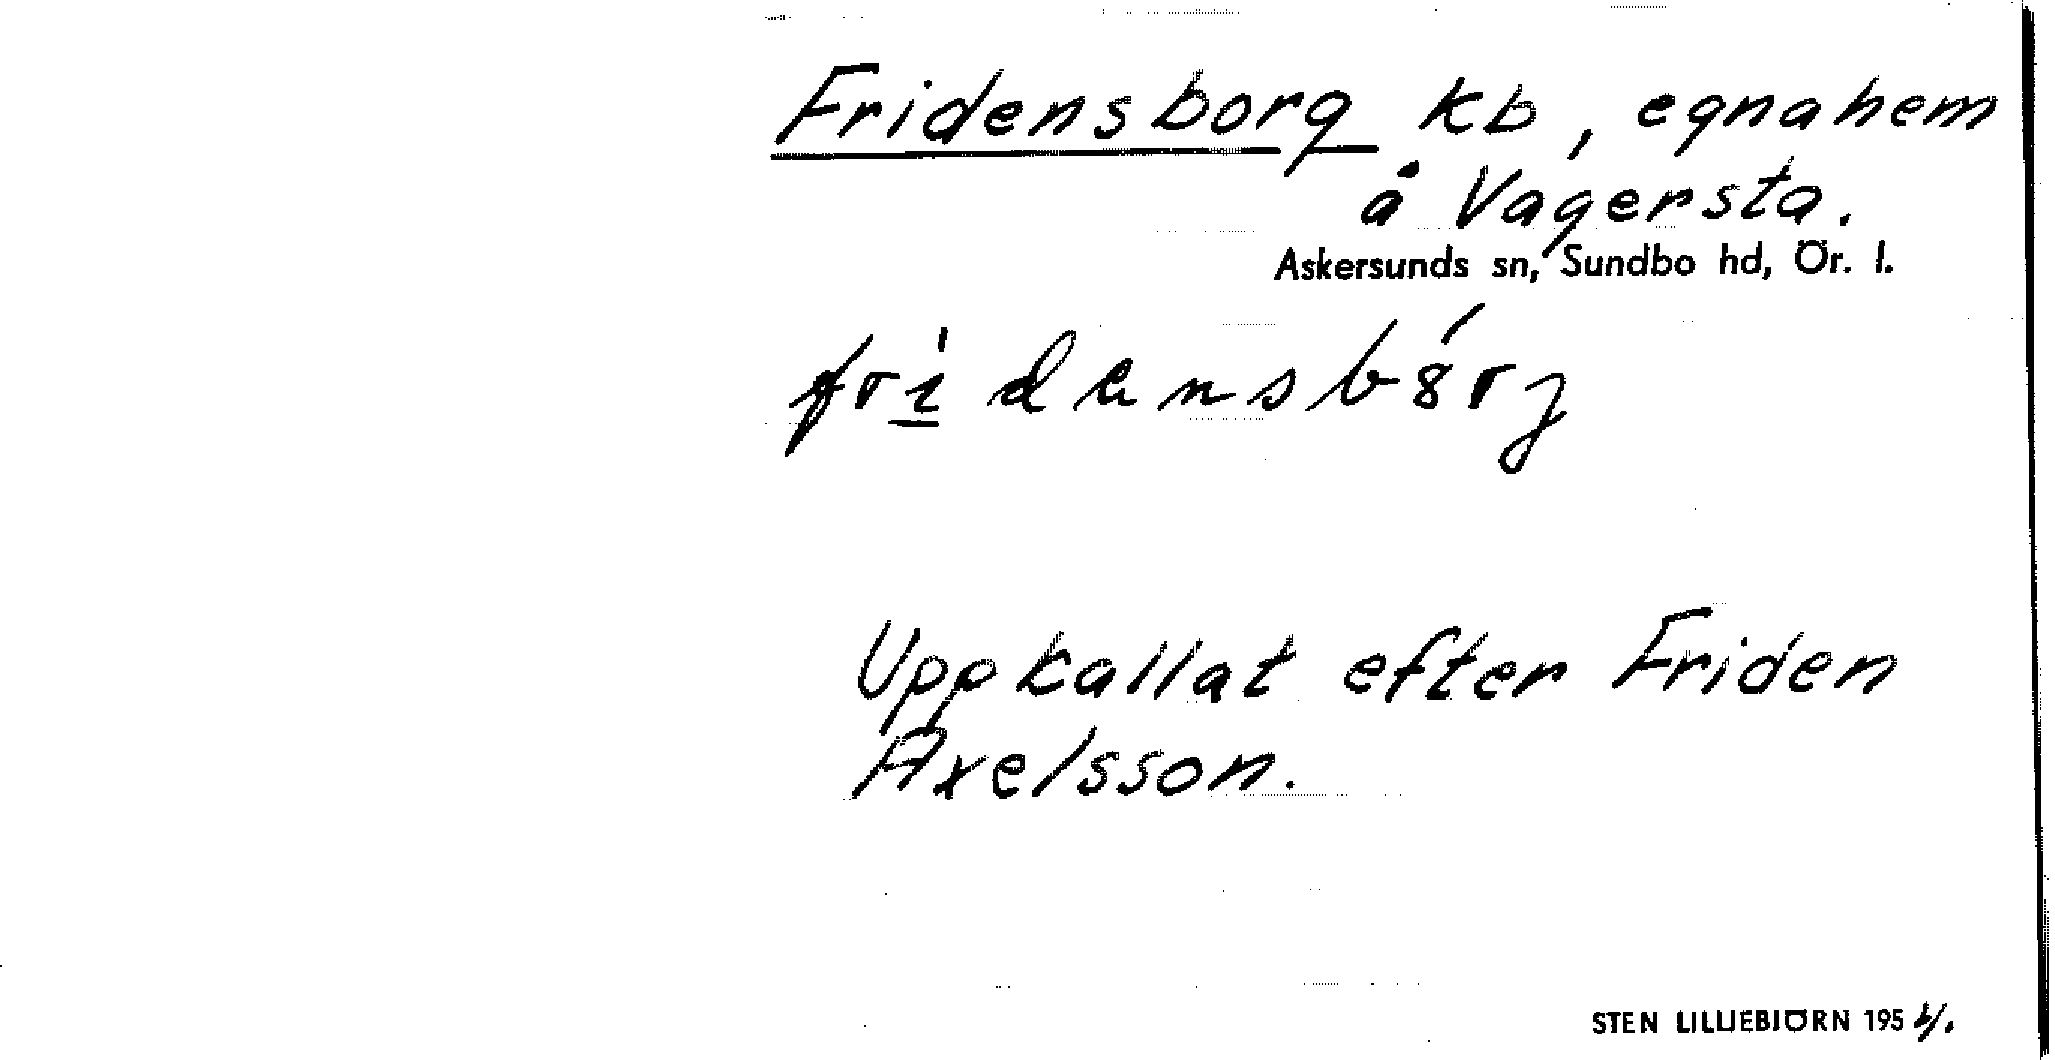 Fridensborg kb, egnahem
å Vagersta.
Askersunds sn, Sundbo hd, Ör. l.
Uppkallat efter Friden
Axelsson.
STEN LILLIEBIÖRN 195